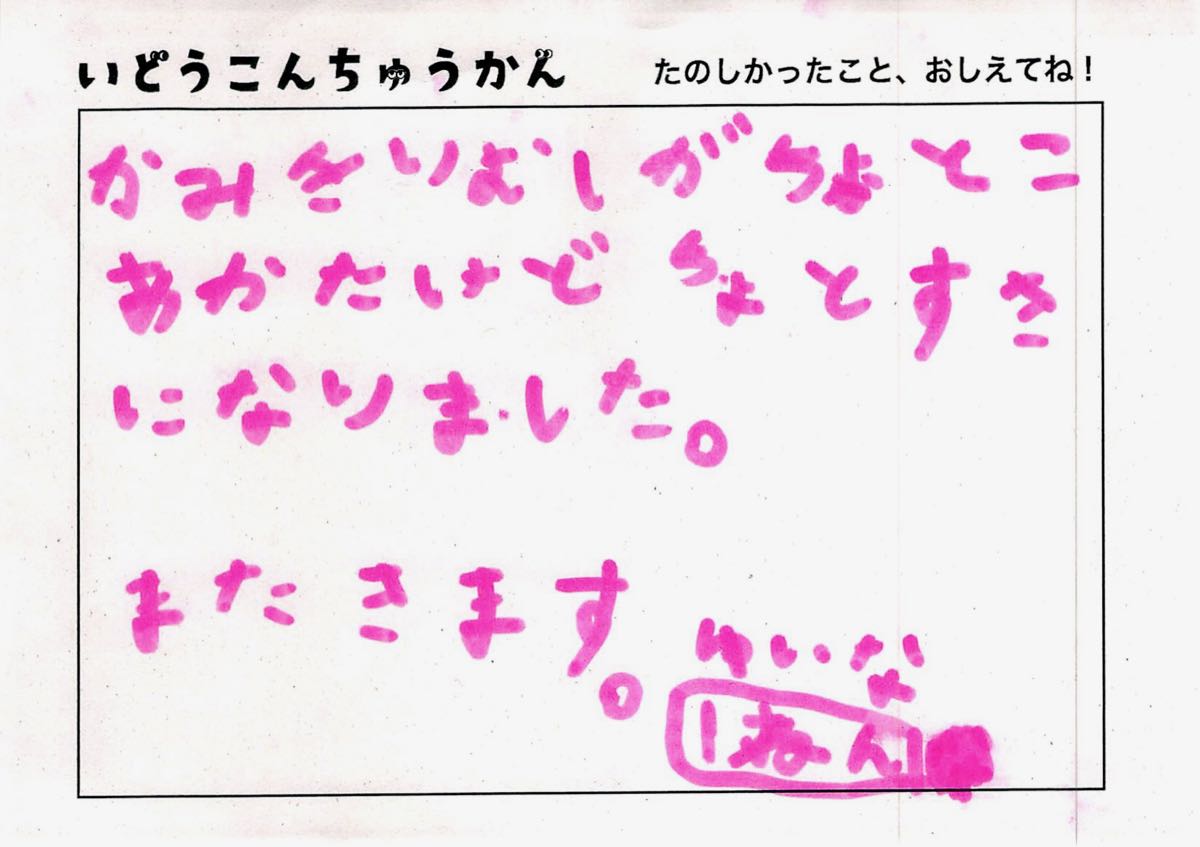 いどうこんちゅうかん
たのしかったこと、おしえてね！
かみきりむしがちょとこ
あかたけど ちょとすき
になりました。
またきます。
ゆいな
1ねん